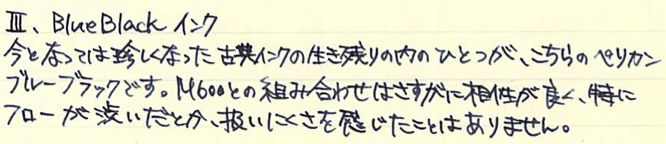 Ⅲ、BlueBlack インク
今となっては珍しくなった古典インクの生き残りの内のひとつが、こちらのペリカン
ブルーブラックです。M600との組み合わせはさすがに相性が良く、特に
フローが渋いだとか、扱いにくさを感じたことはありません。